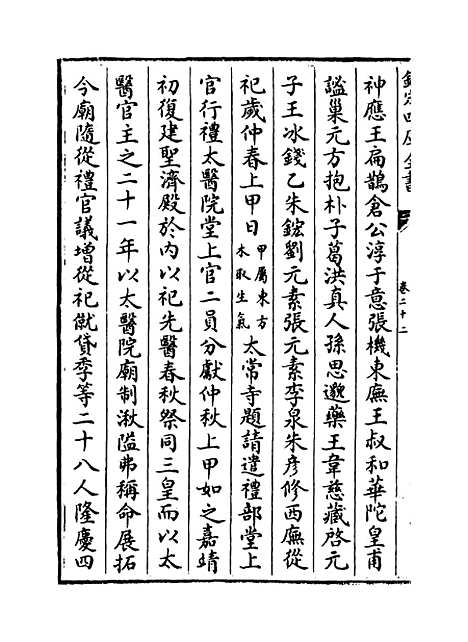 欽定四庫全書
卷二十二
神應王扁鵲倉公淳于意張機東廡王叔和華陀皇甫
謐巢元方抱朴子葛洪真人孫思邈藥王韋慈藏啓元
子王冰錢乙朱鋐劉元素張元素李杲朱彥修西廡從
祀歲仲春上甲日甲屬東方木取生氣太常寺題請遣禮部堂上
官行禮太醫院堂上官二員分獻仲秋上甲如之嘉靖
初復建聖濟殿於內以祀先醫春秋祭同三皇而以太
醫官主之二十一年以太醫院廟制湫隘弗稱命展拓
今廟隨從禮官議增從祀僦貸季等二十八人隆慶四